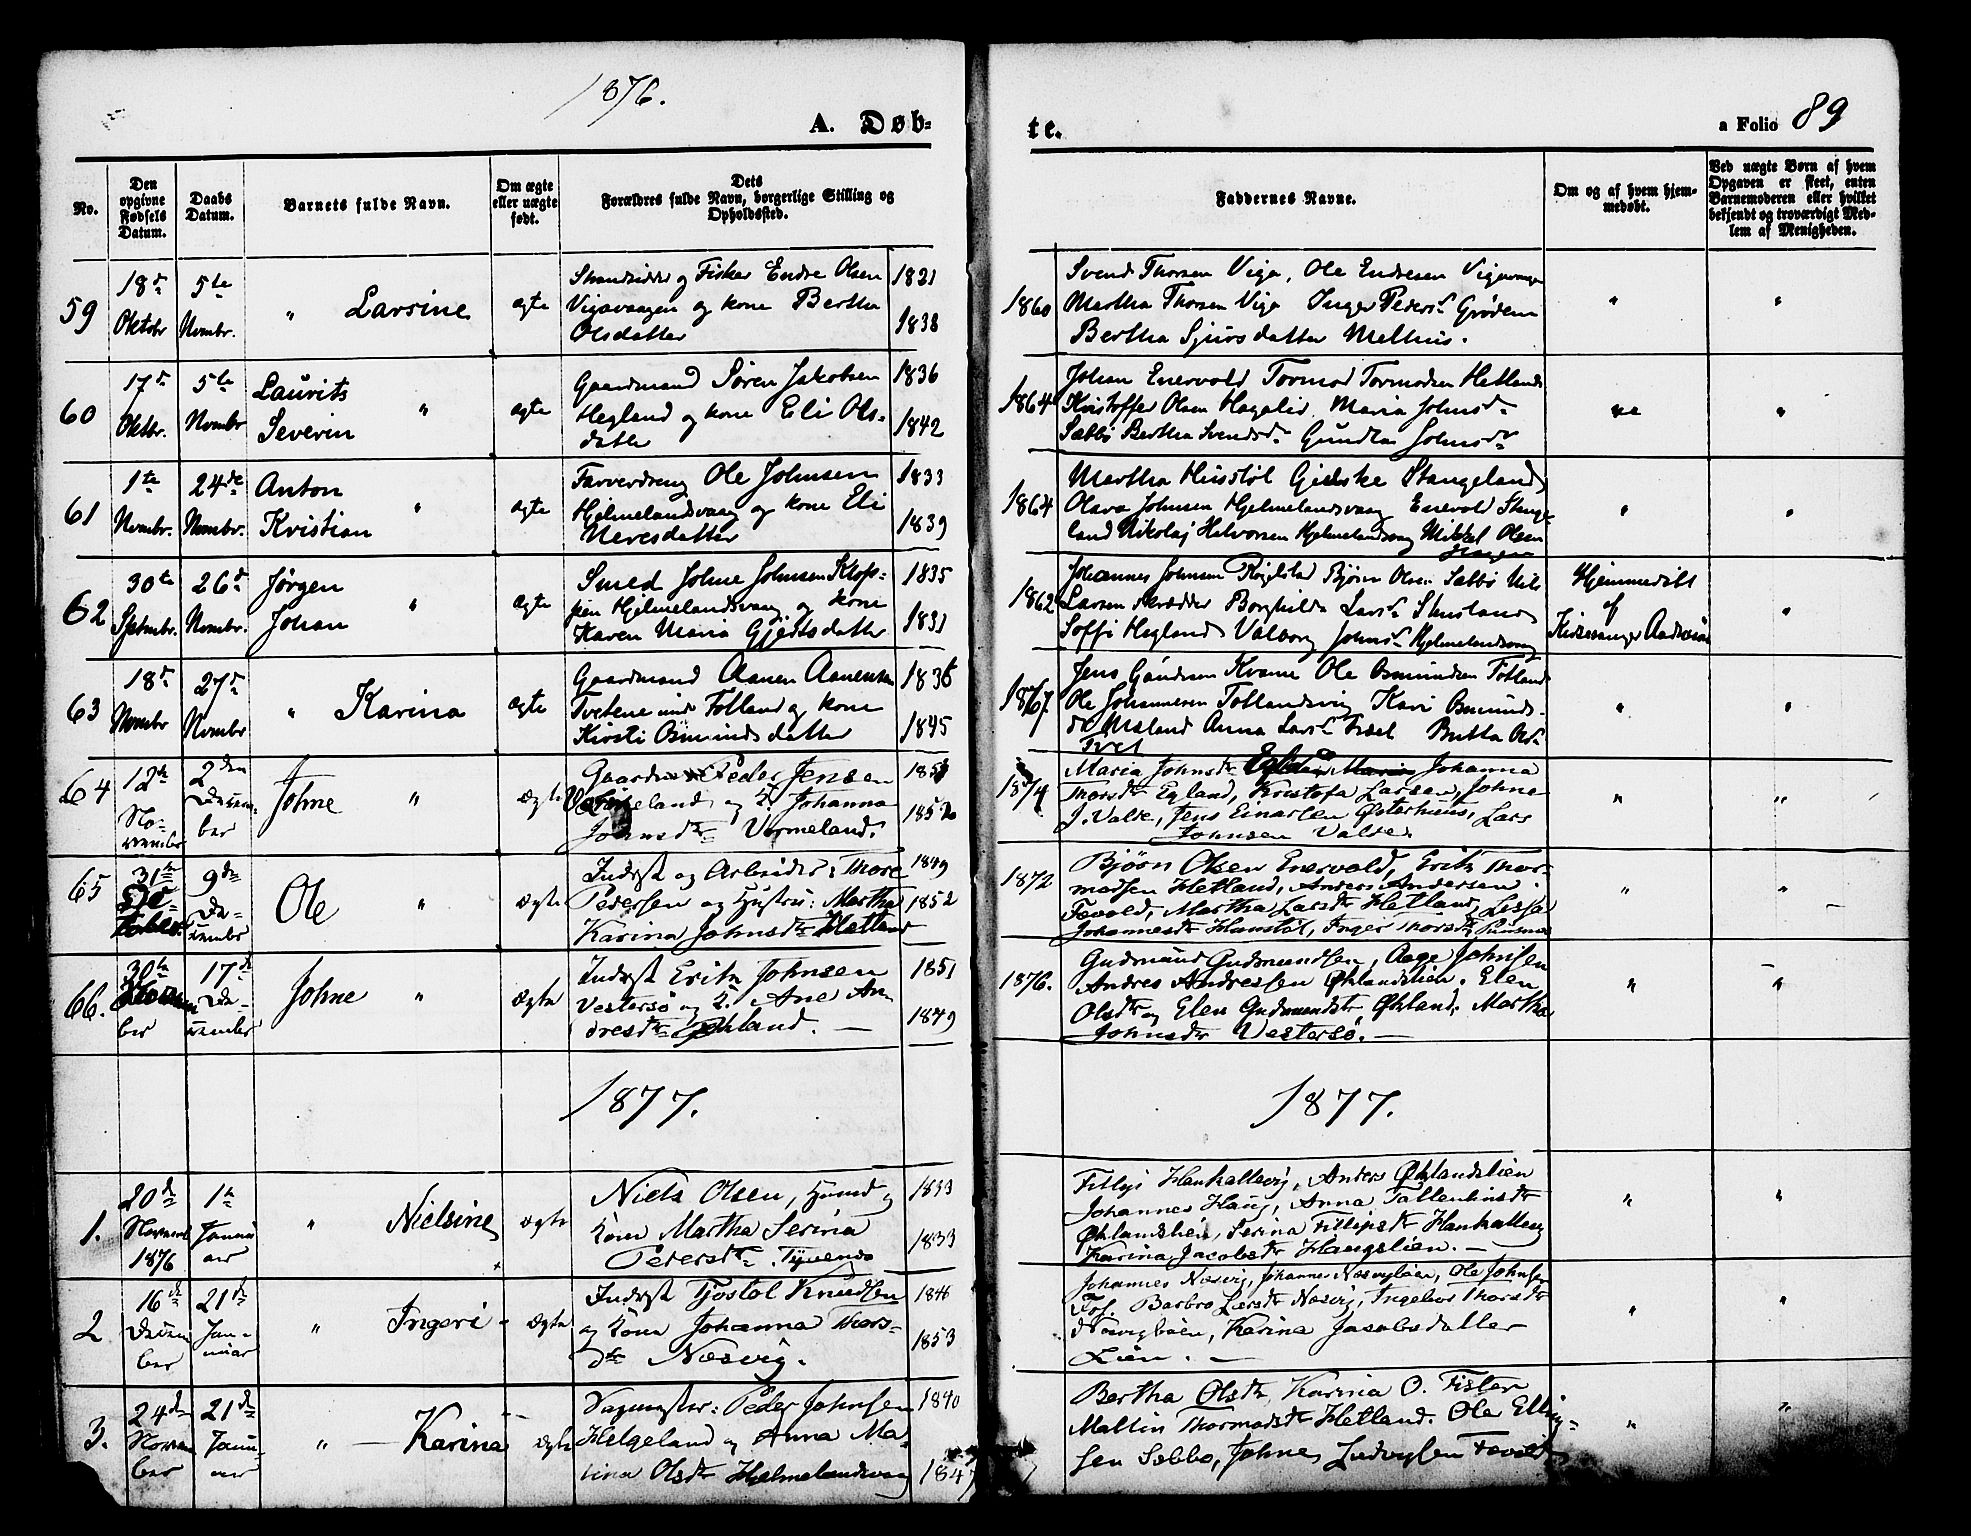 1876.
A. Døb-
te.
a Folio 89
No.
Den
opgivne
Fødsels
Datum.
Daabs
Datum.
Barnets fulde Navn.
Om ægte
eller uægte
født.
Dets
Forældres fulde Navn, borgerlige Stilling og
Opholdssted.
Faddernes Navne.
Om og af hvem hjem-
medøbt.
Ved uægte Børn af hvem
Opgaven er skeet, enten
Barnemoderen eller hvilket
bekjendt og troværdigt Med-
lem af Menigheden.
59
18de
Oktobr
5te
Novmbr.
" Larsine
ægte
Strandsidder og Fisker Endre Olsen
Vigavaagen og kone Bertha
Olsdatter
1821
1838
1860
Svend Thorsen Viga, Ole Endresen
Martha Thorsen Viga Inger Peders
Bertha Sjursdatter Melhus.
"
"
60
17de
Oktbr.
5te
Novmbr
Laurits "
Severin
ægte
Gaardmand Søren Jakobsen
Hegland og kone Eli Ols-
datter
1836
1842
1864
Johan Enervold Tormod Tormodsen Hetland
Kristoffer Olsen Hagalid Maria Johnsd.
Sæbbø Bertha Svendsd. Johnsd.
"
61
1te
Novmbr.
24de
Novmbr.
Anton "
Kristian
ægte
Ole Johnsen
Hjelmelandsvaag og kone Eli
Neresdatter
1833
1839
1864
Martha Husstøl Stangeland
Olava Johnsen Hjelmelandsvaag Enevold Stange-
land Nikolaj Halvorsen Hjelmelandsvaag Mikkel Olsen
"
"
62
30te
Sptmbr.
26de
Novmbr.
Jørgen "
Johan
ægte
Smed Johne Johnsen Klop-
pen Hjelmelandsvaag og kone
Karen Maria Gjertsdatter
1835
1831
1862
Johannes Johnsen Bjørn Olsen Sæbbø
Larsen Skrædder Borghilda Larsd.
Soffi Hegland Valborg Johnsd. Hjelmelandsvaag
Hjemmedøbt
af
Kirkesanger
"
63
18de
Novmbr
27de
Novmbr
" Karina
ægte
Gaardmand Aanen Aanensen
Tvetene Fotland og kone
Kirsti Osmundsdatter
1836
1845
1867
Jens Gundersen Kvame Ole Osmundsen Fotland
Ole Johannesen Totlandsvig Kari Osmunds-
dr Mæland Anna Larsd.
Tvet
"
"
64
12te
No-
vember
2den
Decem-
ber
Johne "
ægte
Peder Jensen
og K. Johanna
Johnsdtr Vormeland.
1852
1874
Maria Johnsdtr Johanna
Thorsdtr Egland, Kristofa Larsen, Johne
J. Valse, Jens Einarsen Østerhuus, Lars
Johnsen Valse.
"
"
65
31te
9de
De-
cember
Ole "
ægte
Inderst og Arbeider: Thore
Pedersen og Hustru: Martha
Karina Johnsdtr Hetland
1849
1852
1872
Bjørn Olsen Enervold, Erik Thor-
modsen Hetland, Anders Andersen
Tævold, Martha Larsdtr Hetland,
Johannesdtr Inger Thorsdtr
"
"
66.
30te
ber
17de
De-
cember
Johne "
ægte
Inderst Erik Johnsen
Vestersø og K. Ane An-
dresdtr Økland. —
1851
1849
1876.
Gudmund Gudmundsen, Aage Johnsen
Andres Andressen Øklandslien. Elen
Olsdtr og Elen Gudmundsdtr Økland, Martha
Johnsdtr Vestersø. —
"
"
1877.
1877.
1.
20de
Novemb
1876
1te
Janu
ar
" Nielsine
ægte
Niels Olsen, Huusmd og
Kone Martha Serina
Pedersdtr.
1833
1833
Fillip Hankallevig, Anders Øklandslien
Johannes Haug, Anna
Øklandslien, Serina Fillipsdtr Hankallevig
Karina Jacobsdtr Haugslien. —
"
"
2
16de
Decem
ber
21de
Jan-
uar
" Ingeri -
ægte
Inderst Tjøstol Knudsen
og Kone Johanna Thors-
dtr Næsvig.
1846
1853
Johannes Næsvig, Johannes Næsvigløen, Ole Johnsen
Fos. Barbro Larsdtr Næsvig, Ingebor Thorsdtr
Næsvigløen, Karina Jacobsdatter
Lien. —
"
"
3.
24de
Novem
ber
21de
Janu-
ar
" — Karina
ægte
Peder Johnsen
Helgeland og Anna Ma-
lina Olsdtr Hjelmelandsvaag
1840
1847
Bertha Olsdtr, Karina O. Fister
Mallin Thormodsdtr Hetland. Ole Elling-
sen Sæbbø, Johnes Ludvigsen Tævold
"
"